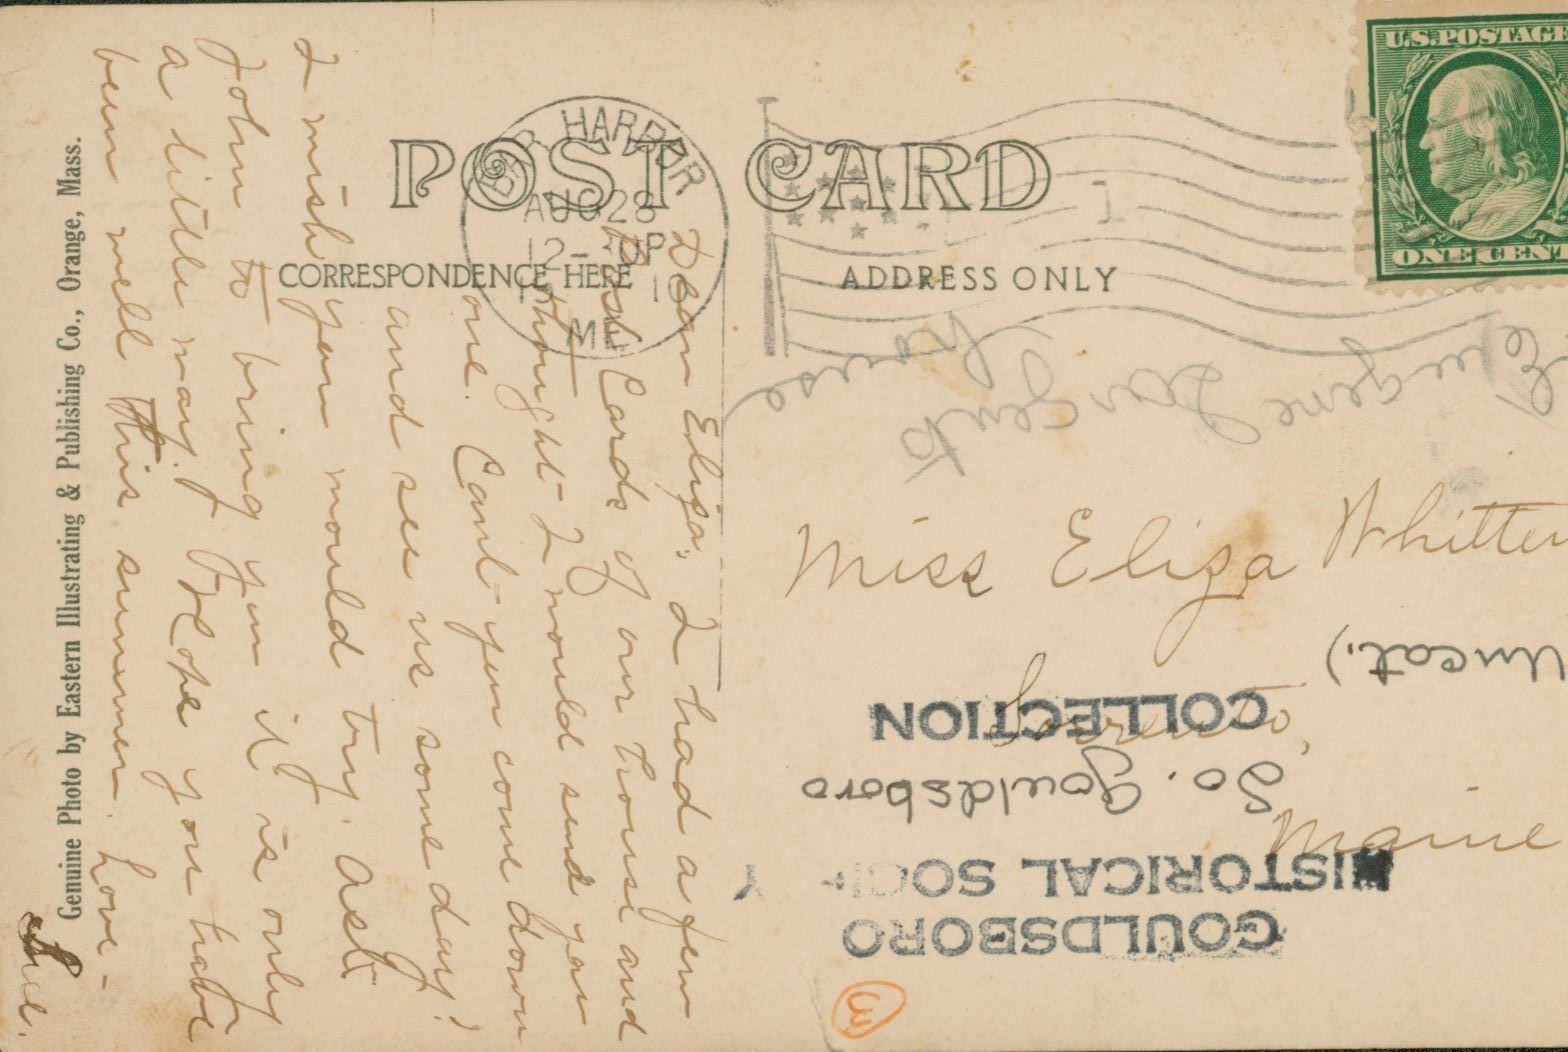 POST CARD
CORRESPONDENCE HERE
ADDRESS ONLY
BAR HARBOR
AUG 28
12-30P
ME
1
U.S. POSTAGE
ONE CENT
Dear Eliza, I had a few
Post Cards of our house and
thought I would send you
one. Cant you come down
and see us some day?
I wish you would try. Ask
John to bring you it is only
a little way. Hope you have
been well this summer. Love-
Sue.
Genuine Photo by Eastern Illustrating & Publishing Co., Orange, Mass.
Eugene Sargent's
house
Miss Eliza Whitten
Sorrento,
Maine
Uncat.)
GOULDSBORO
HISTORICAL SOCI Y
So. Gouldsboro
COLLECTION
3